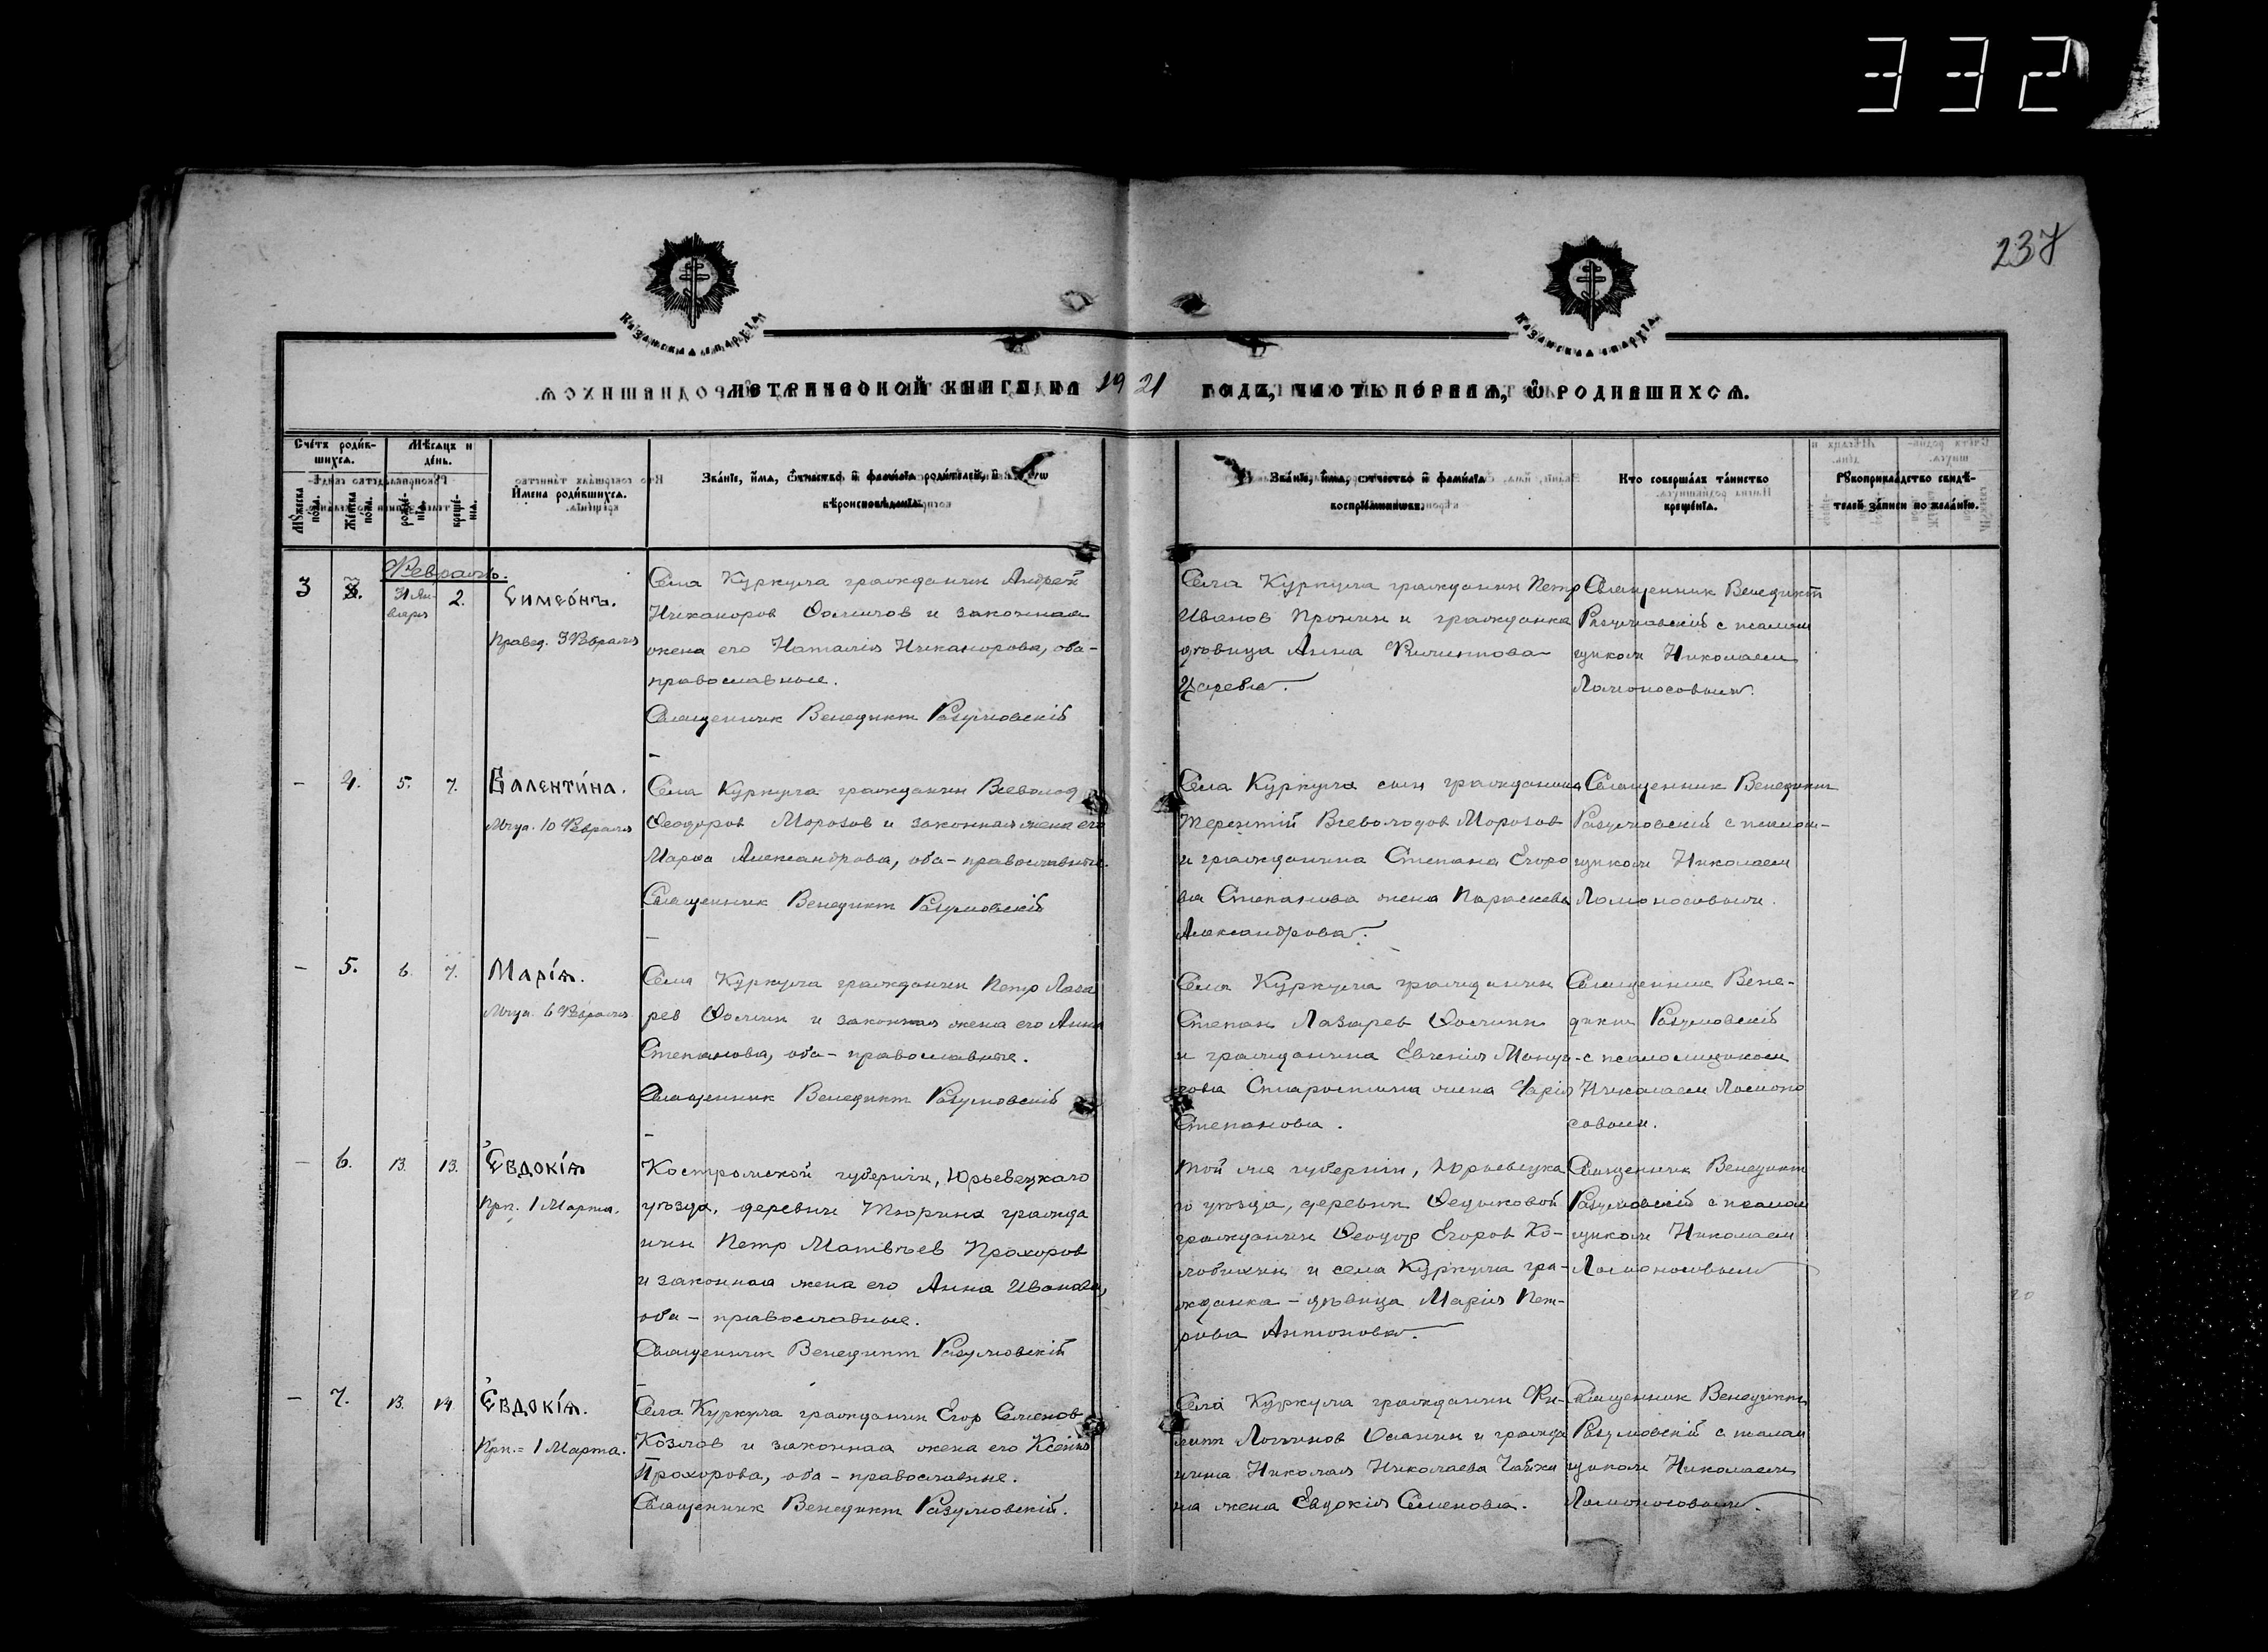 332
237
Казанская епархія.
Казанская епархія.
метрической книги на 1921 годъ, часть первая, ѡ родившихся.
Счетъ родившихся.
Мужеска пола.
Женска пола.
Мѣсяцъ и день.
рожденія.
крещенія.
Имена родившихся.
Званіе, имя, отчество и фамилія родителей, и
вѣроисповѣданія.
Званіе, имя, отчество и фамилія
воспріемниковъ.
Кто совершалъ таинство
крещенія.
Рукоприкладство свидѣ-
телей записи по желанію.
Февраль.
3
3.
31 Ян-
варя
2.
Симеонъ.
Правед. 3 Февраля
Села Куркула гражданин Андрей
Никаноров Фомичов и законная
жена его Наталія Никанорова, оба-
православные.
Священник Венедикт Разумовскій
Села Куркула гражданин Петр
Иванов Пронин и гражданка
дѣвица Анна Филиппова
Царева.
Священник Венедикт
Разумовскій с псалом
щиком Николаем
Ломоносовым.
-
4.
5.
7.
Валентина.
Мчца. 10 Февраля
Села Куркула гражданин Всеволод
Феодоров Морозов и законная жена его
Марфа Александрова, оба-православные.
Священник Венедикт Разумовскій
Села Куркула сын гражданина
Терентій Всеволодов Морозов
и гражданина Степана Егоро
ва Степанова жена Параскева
Александрова.
Священник Венедикт
Разумовскій с псалом-
щиком Николаем
Ломоносовым.
-
5.
6.
7.
Марія.
Мчца. 6 Февраля
Села Куркула гражданин Петр Лаза
рев Фомин и законная жена его Анна
Степанова, оба-православные.
Священник Венедикт Разумовскій
Села Куркула гражданин
Степан Лазарев Фомин
и гражданина Евгенія
Старостина жена Марія
Степанова.
Священник Вене-
дикт Разумовскій
с псаломщиком
Николаем Ломоно
совым.
-
6.
13.
13.
Евдокія
Прп. 1 Марта.
Костромской губерніи, Юрьевецкаго
уѣзда, деревни Тюрина гражда
нин Петр Матвѣев Прохоров
и законная жена его Анна Иванова,
оба-православные.
Священник Венедикт Разумовскій
Той же губерніи, Юрьевецка
го уѣзда, деревни Федяковой
гражданин Феодор Егоров Ко-
и села Куркула гра-
жданка-дѣвица Марія Пет-
рова Антонова.
Священник Венедикт
Разумовскій с псалом
щиком Николаем
Ломоносовым
-
7.
13.
14
Евдокія.
Прп.= 1 Марта.
Села Куркула гражданин Егор Семенов
Козлов и законная жена его Ксенія
Прохорова, оба-православные.
Священник Венедикт Разумовскій.
Села Куркула гражданин Фи-
липп Логинов и гражда
нина Николая Николаева
на жена Евдокія Семенова.
Священник Венедикт
Разумовскій с псалом
щиком Николаем
Ломоносовым.